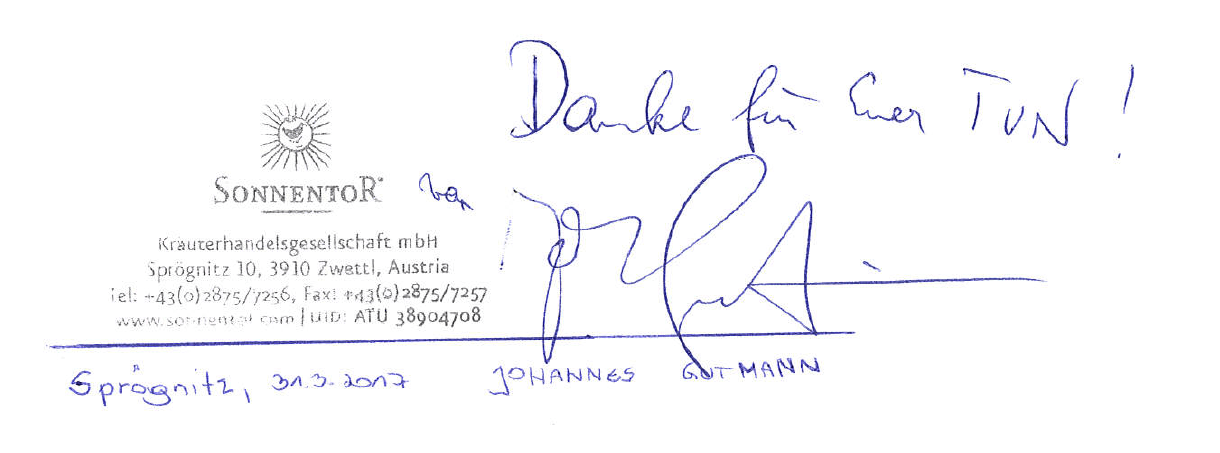 Danke für Euer TUN!
SONNENTOR®
von
Kräuterhandelsgesellschaft mbH
Sprögnitz 10, 3910 Zwettl, Austria
Tel: +43(0)2875/7256, Fax: +43(0)2875/7257
www.sonnentor.com | UID: ATU 38904708
Sprögnitz, 31.3.2017
JOHANNES GUTMANN